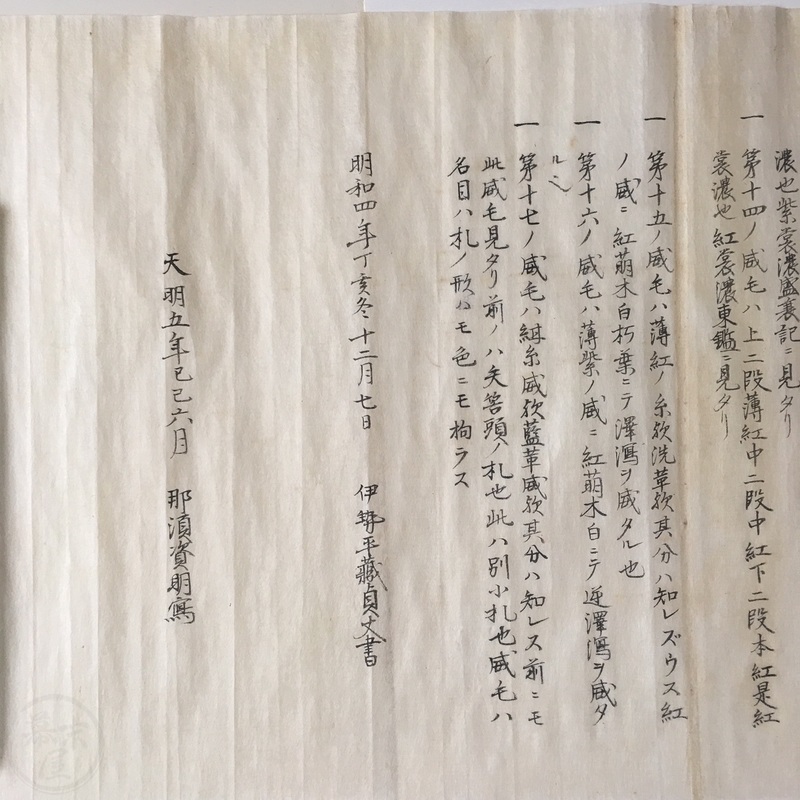 濃也紫裳濃盛衰記ニ見タリ
一 第十四ノ威毛ハ上二段薄紅中二段中紅下二段本紅是紅
裳濃也紅裳濃東鑑ニ見タリ
一 第十五ノ威毛ハ薄紅ノ糸欤洗革欤其分ハ知レズウス紅
ノ威ニ紅萌木白朽葉ニテ澤瀉ヲ威タル也
一 第十六ノ威毛ハ薄紫ノ威ニ紅萌木白ニテ逆澤瀉ヲ威タ
ル也
一 第十七ノ威毛ハ紺糸威欤藍革威欤其分ハ知レス前ニモ
此威毛見タリ前ノハ矢筈頭ノ札也此ハ別小札也威毛ハ
名目ハ札ノ形ニモ色ニモ拘ラス
明和四年丁亥冬十二月七日 伊勢平蔵貞丈書
天明五年乙巳六月 那須資明寫